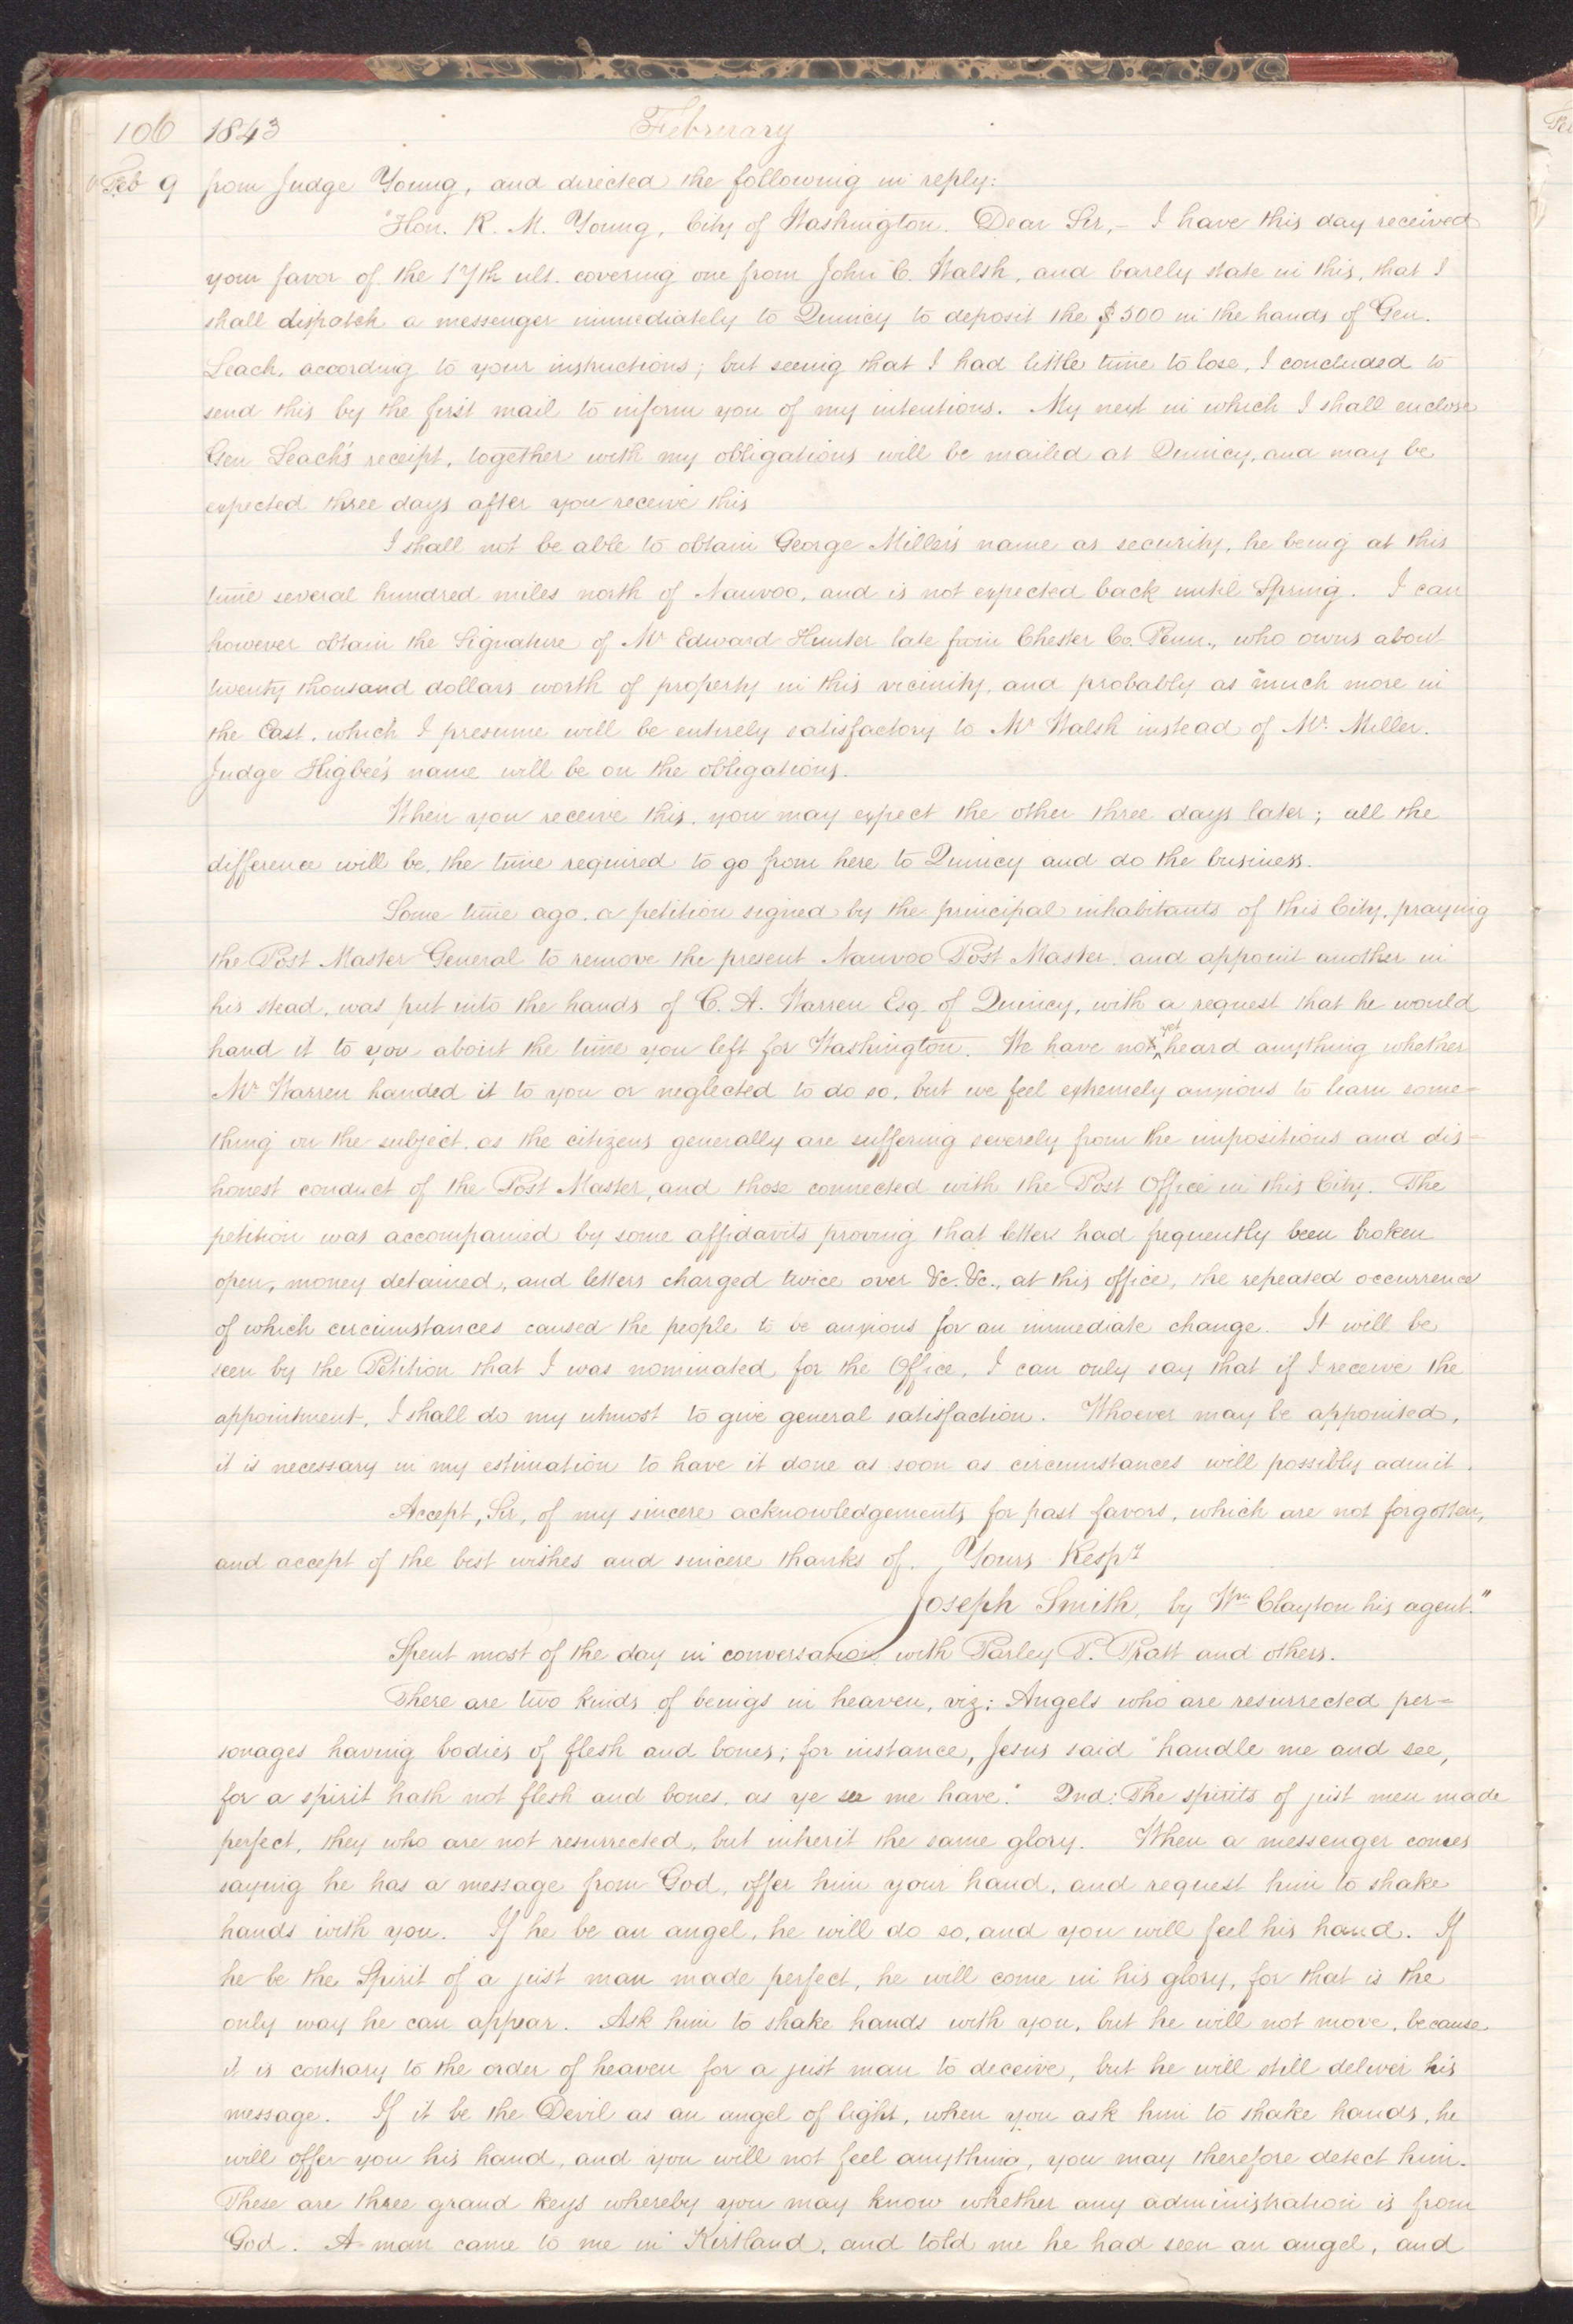 106 1843 February
Feb 9 from Judge Young, and directed the following in reply:
"Hon. R. M. Young, City of Washington. Dear Sir,- I have this day received
your favor of the 17th ult. covering one from John C. Walsh, and barely state in this, that I
shall dispatch a messenger immediately to Quincy to deposit the $500 in the hands of Gen.
Leach, according to your instructions; but seeing that I had little time to lose, I concluded to
send this by the first mail to inform you of my intentions. My next in which I shall enclose
Gen Leach's receipt, together with my obligations will be mailed at Quincy, and may be
expected three days after you receive this
I shall not be able to obtain George Miller's name as security, he being at this
time several hundred miles north of Nauvoo, and is not expected back until Spring. I can
however obtain the Signature of Mr Edward Hunter late from Chester Co. Penn., who owns about
twenty thousand dollars worth of property in this vicinity, and probably as much more in
the East, which I presume will be entirely satisfactory to Mr Walsh instead of Mr. Miller.
Judge Higbee's name will be on the obligations.
When you receive this, you may expect the other three days later; all the
difference will be, the time required to go from here to Quincy and do the business.
Some time ago, a petition signed by the principal inhabitants of this City, praying
the Post Master General to remove the present Nauvoo Post Master, and appoint another in
his stead, was put into the hands of C. A. Warren Esq. of Quincy, with a request that he would
hand it to you about the time you left for Washington. We have not yet heard anything whether
Mr Warren handed it to you or neglected to do so, but we feel extremely anxious to learn some=
thing on the subject, as the citizens generally are suffering severely from the impositions and dis=
honest conduct of the Post Master, and those connected with the Post Office in this City. The
petition was accompanied by some affidavits proving that letters had frequently been broken
open, money detained, and letters charged twice over &c. &c., at this office, the repeated occurrence
of which circumstances caused the people to be anxious for an immediate change. It will be
seen by the Petition that I was nominated for the Office, I can only say that if I receive the
appointment, I shall do my utmost to give general satisfaction. Whoever may be appointed,
it is necessary in my estimation to have it done as soon as circumstances will possibly admit.
Accept, Sir, of my sincere acknowledgements for past favors, which are not forgotten,
and accept of the best wishes and sincere thanks of. Yours Respy
Joseph Smith, by Wm Clayton his agent."
Spent most of the day in conversation with Parley P. Pratt and others.
There are two kinds of beings in heaven, viz; Angels who are resurrected per=
sonages having bodies of flesh and bones; for instance, Jesus said "handle me and see,
for a spirit hath not flesh and bones, as ye see me have." 2nd: The spirits of just men made
perfect, they who are not resurrected, but inherit the same glory. When a messenger comes
saying he has a message from God, offer him your hand, and request him to shake
hands with you. If he be an angel, he will do so, and you will feel his hand. If
he be the Spirit of a just man made perfect, he will come in his glory, for that is the
only way he can appear. Ask him to shake hands with you, but he will not move, because
it is contrary to the order of heaven for a just man to deceive, but he will still deliver his
message. If it be the Devil as an angel of light, when you ask him to shake hands, he
will offer you his hand, and you will not feel anything, you may therefore detect him.
These are three grand keys whereby you may know whether any administration is from
God. A man came to me in Kirtland, and told me he had seen an angel, and